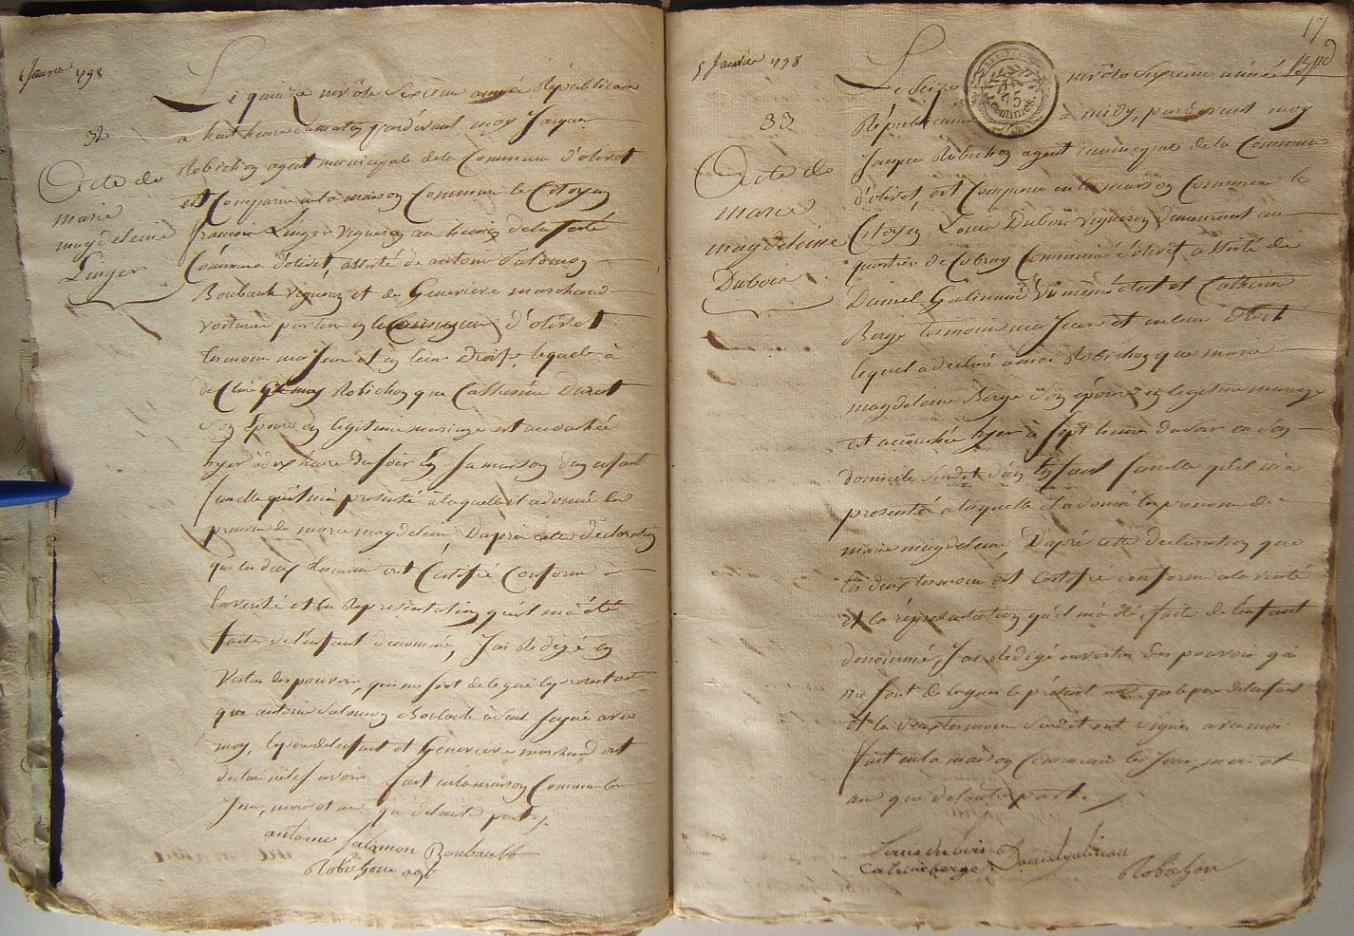 Janvier 798
32
Acte de
marie
magdeleine
Linger
Le quinze nivôse Sixième année Républicaine
a huit heures du matin pardevant moy Jaques
Robichon agent municipale de la Commune d'olivet
est Comparu en la maison Commune le Citoyen
francois Linger vigneron au
Commune d'olivet, assisté de antoine Salomon
Boubault vigneron et de Genevieve marchand
d'olivet
tesmoins majeurs et en leur Droit, lequel à
declaré à moy Robichon que Catherine Duret
son Epouse en legitime mariage est accouchée
hyer à dix heures du soir en sa maison d'un enfant
femelle qu'il m'a presenté à laquelle il a donné les
prenoms de marie magdeleine Daprès cette declaration
que les deux tesmoins ont Certifié Conforme à
la verité et la Représentation qu'il m'a été
faite de l'enfant denommé, J'ai Redigé en
Vertu des pouvoirs, qui me sont delegués le present acte
que antoine Salomon Boubault a seul signé avec
moy, le pere de l'enfant et Genevieve marchand ont
declaré ne le savoir fait en la maison Commune les
Jour, mois et an que d'autre part.
antoine Salomon Boubault
Robichon agt
17
5 Janvier 798
33
Acte de
marie
magdeleine
Dubois
Le Seize nivôse Sixieme année
Républicaine à midy, pardevant moy
Jaques Robichon agent municipal de la Commune
d'olivet, est Comparu en la maison Commune le
Citoyen Louis Dubois vigneron demeurant au
quartier de Cubray Commune d'olivet assisté de
Daniel Galineau et Catherine
Berge tesmoins majeurs et en leur Droit
lequel a declaré a moi Robichon que marie
magdeleine Berge son épouse en legitime mariage
est accouchée hyer à sept heures du soir en son
domicile susdit d'un Enfant femelle qu'il m'a
presenté a laquelle il a donné les prenoms de
marie magdeleine, Daprès cette declaration que
les deux tesmoins ont Certifié conforme a la verité
et la réprésentation qu'il m'a été faite de l'enfant
denommé, J'ai Redigé en vertu des pouvoirs qui
me sont delegués le présent acte que le pere de l'enfant
et les deux tesmoins susdit ont signés avec moi
fait en la maison Commune les Jour, mois et
an que d'autre part.
Louis dubois Daniel galineau
Catrine berge Robichon